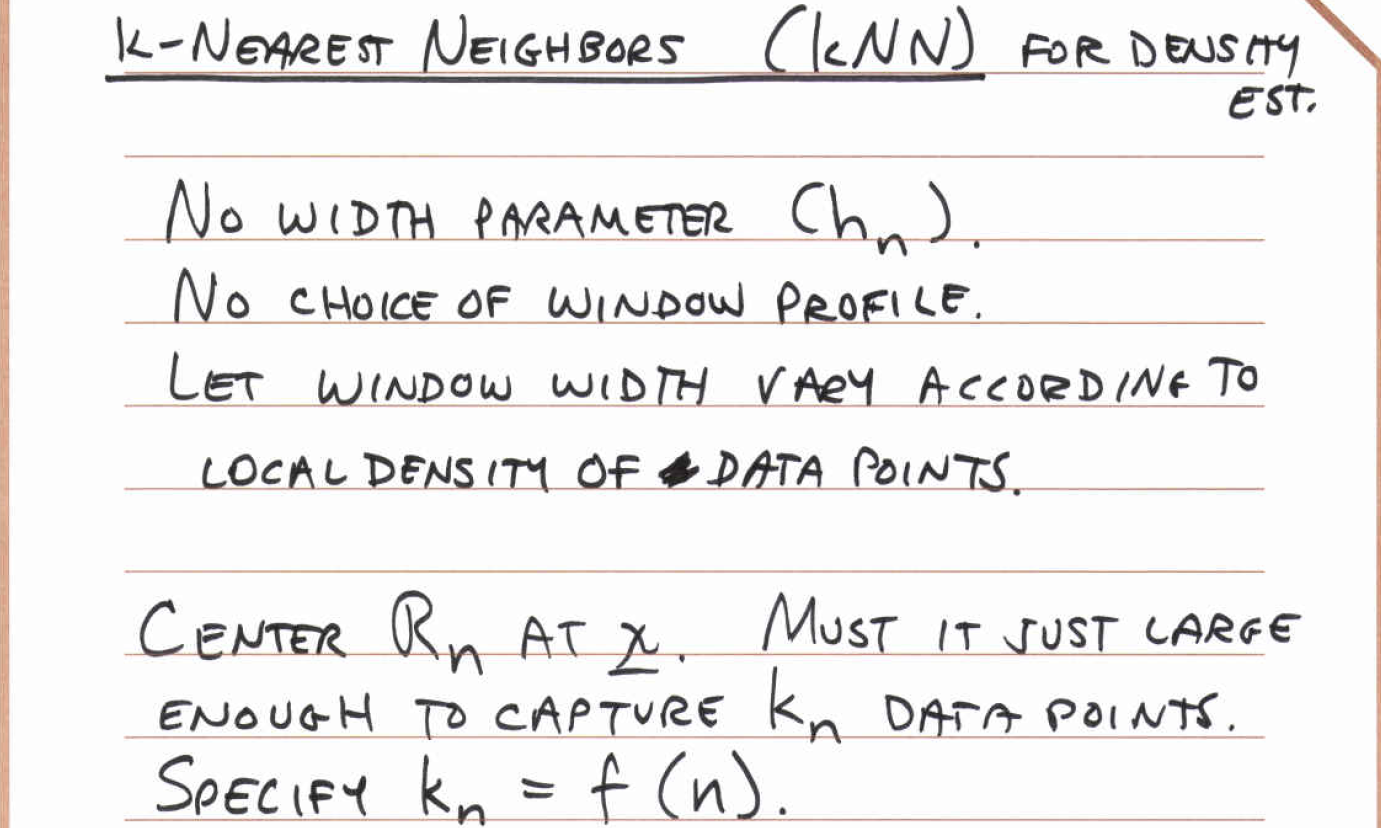 K-NEAREST NEIGHBORS (kNN) FOR DENSITY
EST.
NO WIDTH PARAMETER (hn).
NO CHOICE OF WINDOW PROFILE.
LET WINDOW WIDTH VARY ACCORDING TO
LOCAL DENSITY OF DATA POINTS.
CENTER Rn AT x. MUST IT JUST LARGE
ENOUGH TO CAPTURE kn DATA POINTS.
SPECIFY kn = f(n).